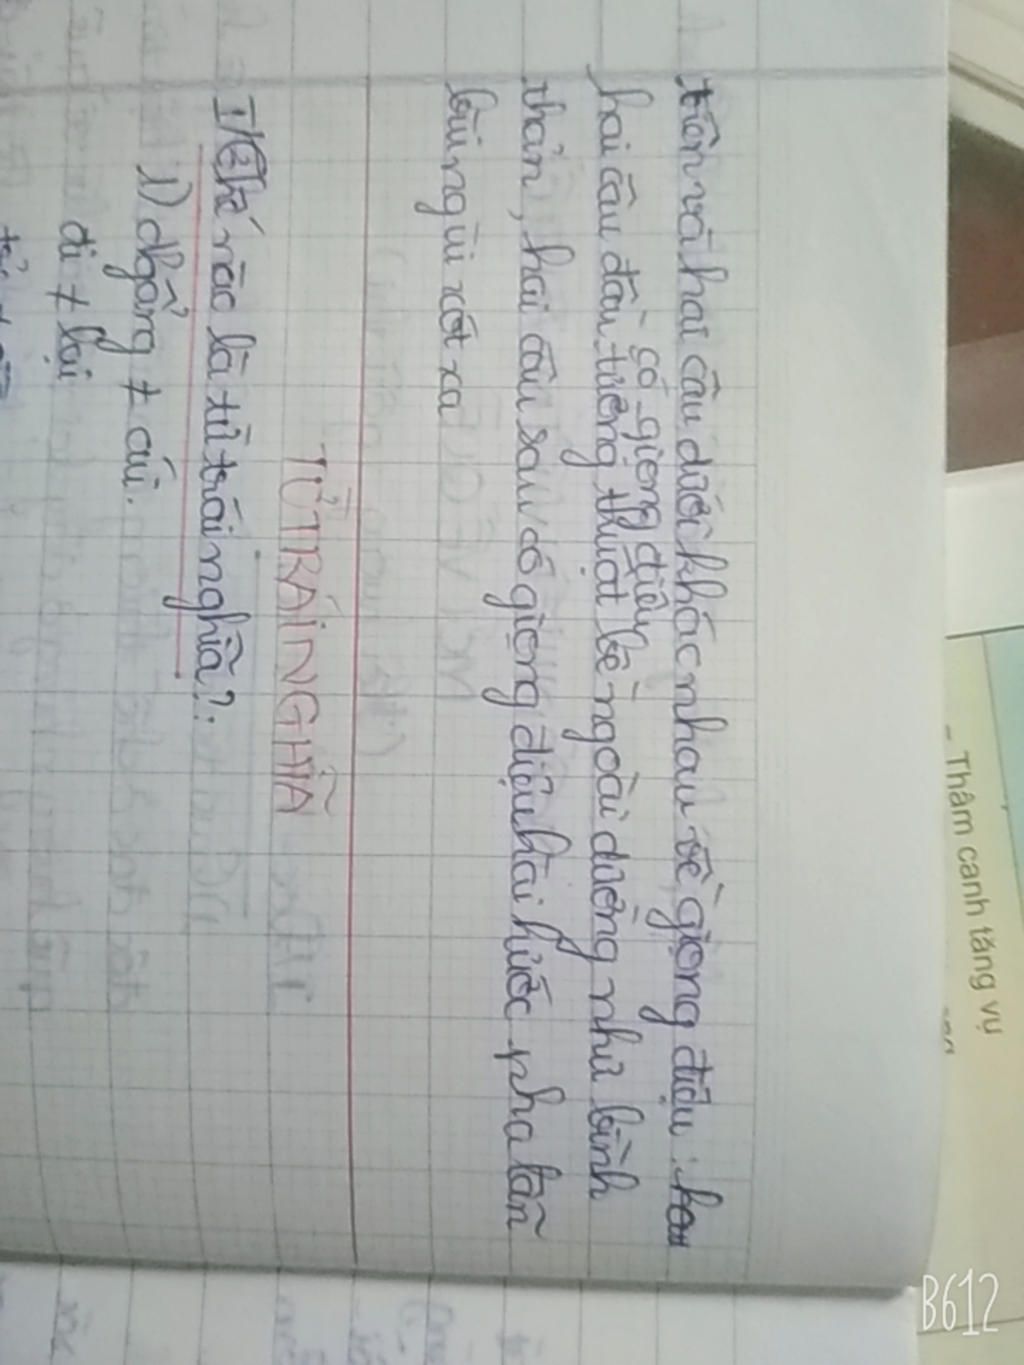 trên và hai câu dưới khác nhau về giọng điệu:
có giọng điệu
hai câu đầu tường thuật bề ngoài dường như bình
thản, hai câu sau có giọng điệu hài hước pha lẫn
bùi ngùi xót xa
TỪ TRÁI NGHĨA
I/ Thế nào là từ trái nghĩa?
1) ngẩng ≠ cúi.
đi ≠ lại
- Thâm canh tăng vụ
B612